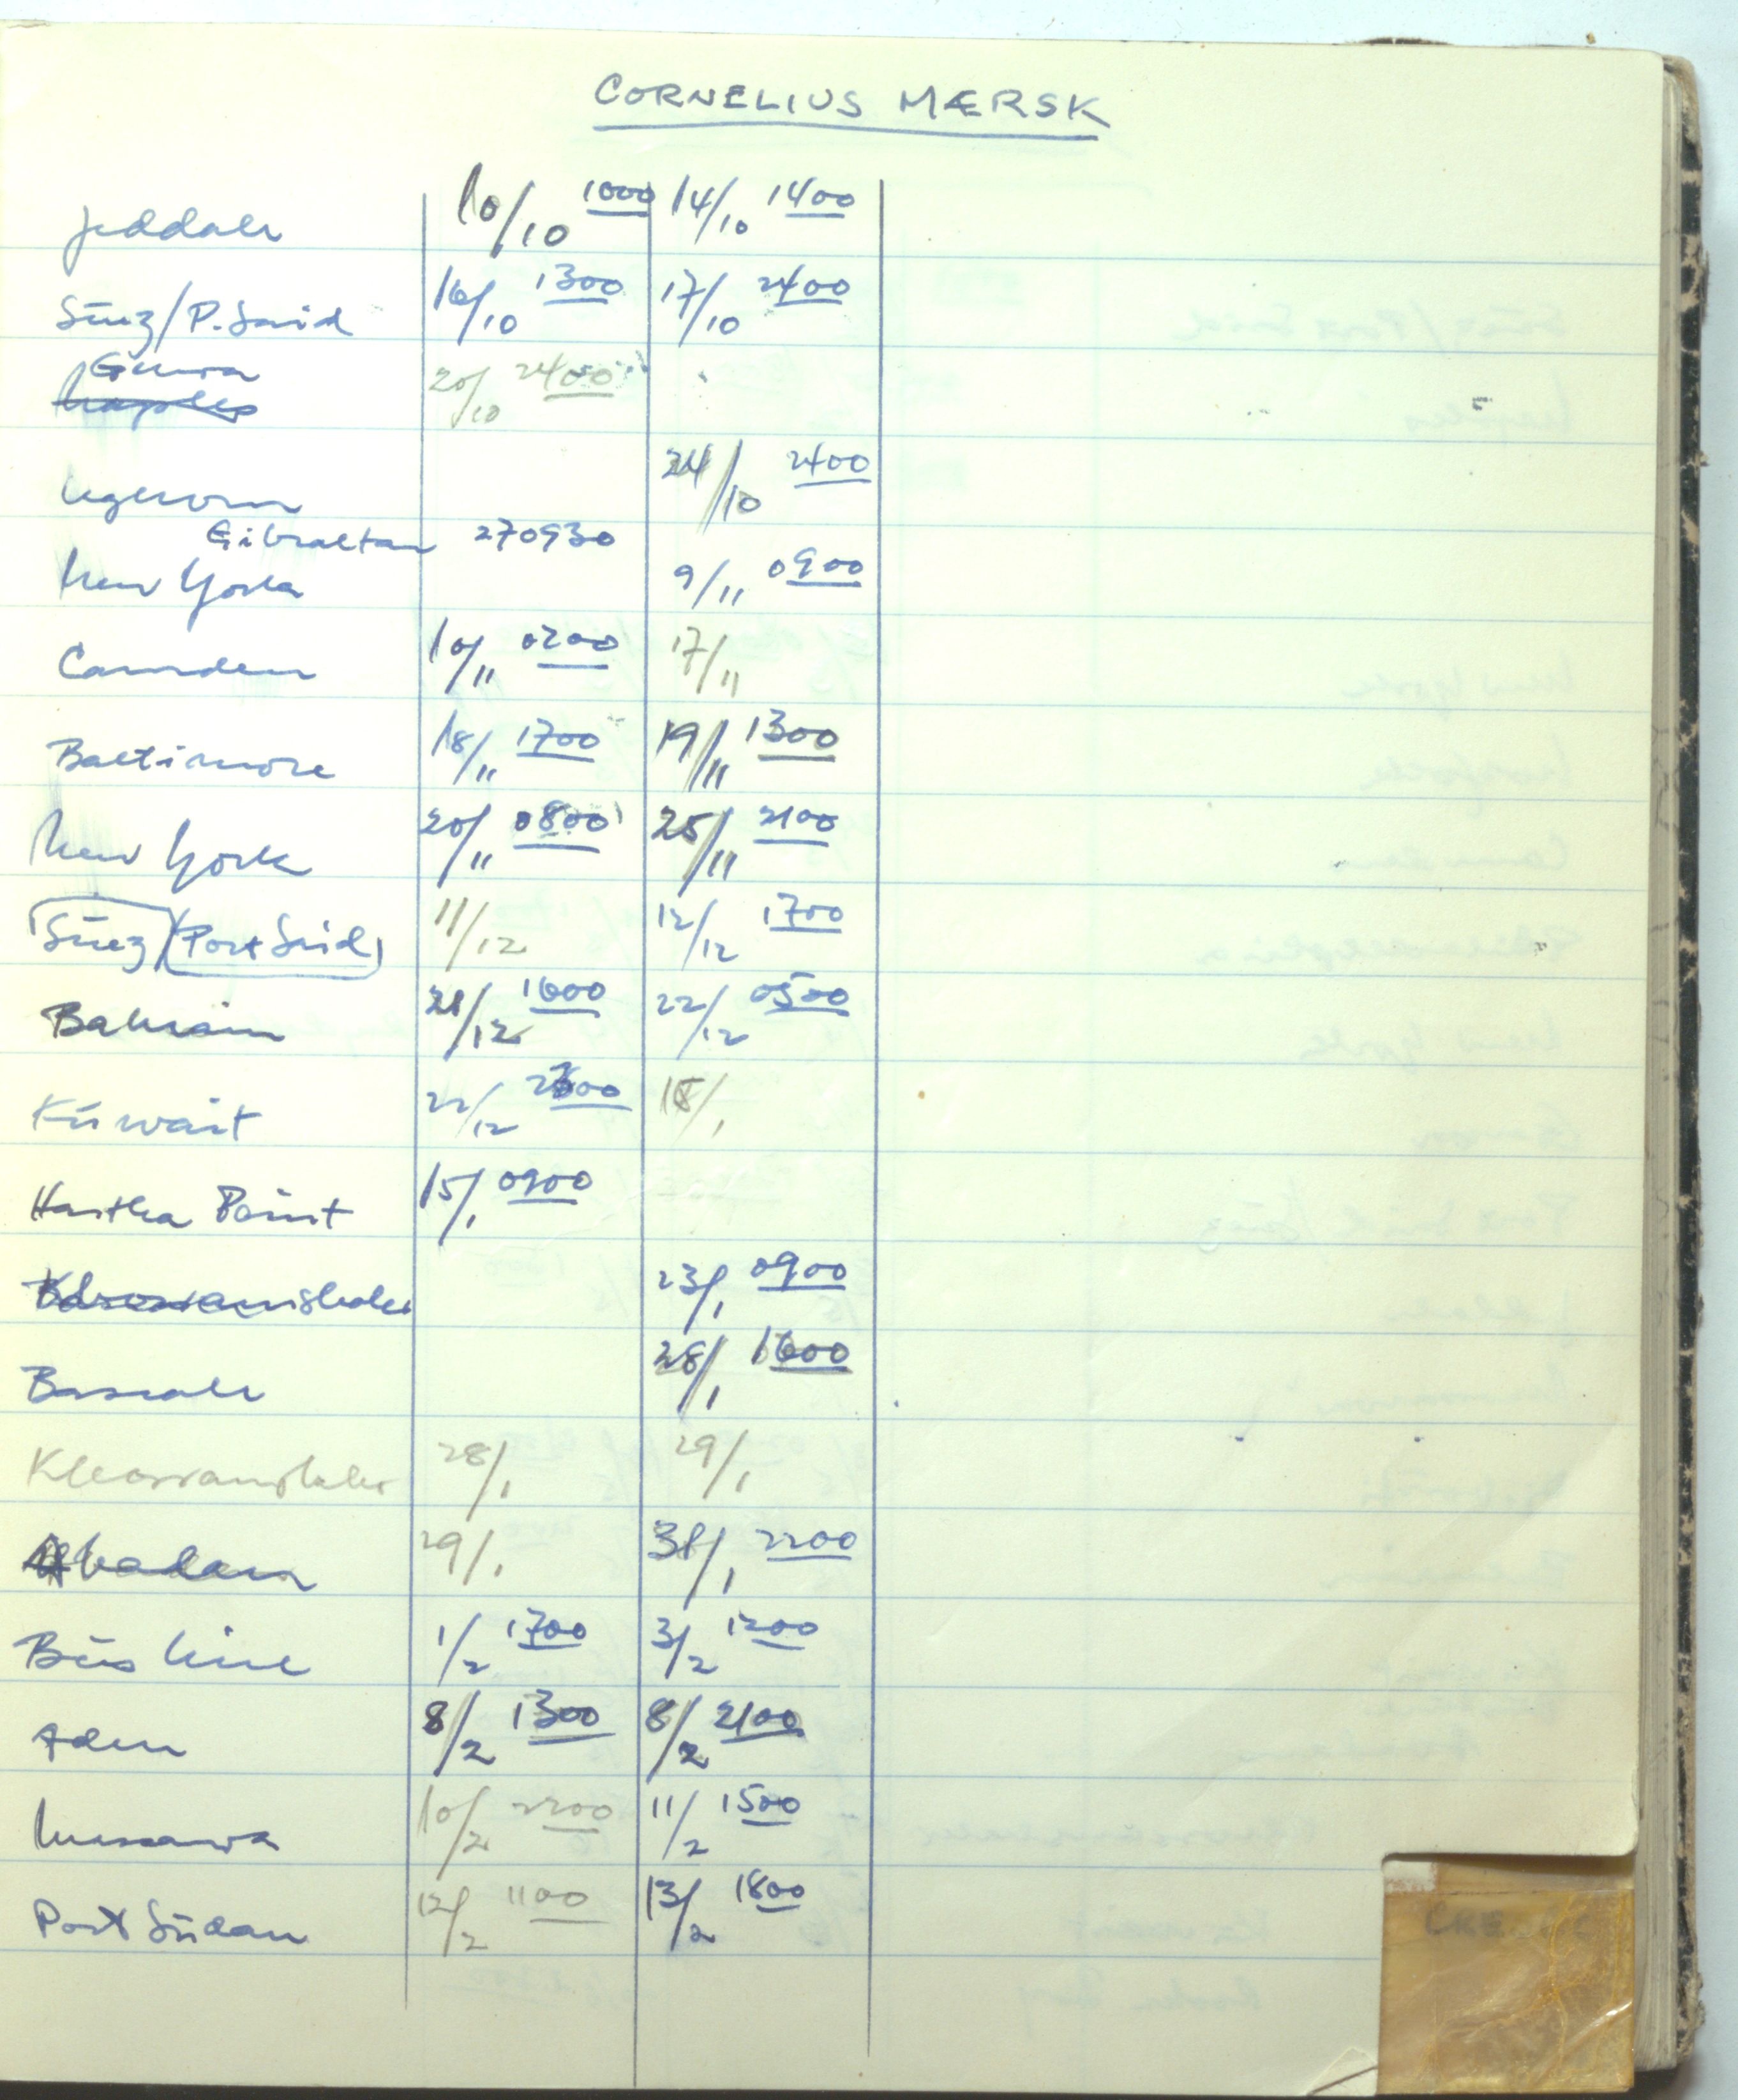 CORNELIUS MÆRSK
Jeddah 10/10 1000 14/10 1400
Súez/P. Said 16/10 1300 17/10 2400
Genoa 20/10 2400
Naples
Leghorn 24/10 2400
Gibraltar 270930
New York 9/11 0900
Camden 10/11 0200 17/11
Baltimore 18/11 1700 19/11 1300
New York 20/11 0800 25/11 2100
Súez (Port Said) 11/12 12/12 1700
Bahrain 21/12 1600 22/12 0500
Kúwait 22/12 15/1
Hartha Point 15/1 0900
23/1 0900
Basrah 28/1 1600
28/1 29/1
Abadan 29/1 31/1 2200
Búshire 1/2 1700 3/2 1200
Aden 8/2 1300 8/2 2100
Massawa 10/2 2200 11/2 1500
Port Súdan 12/2 1100 13/2 1800